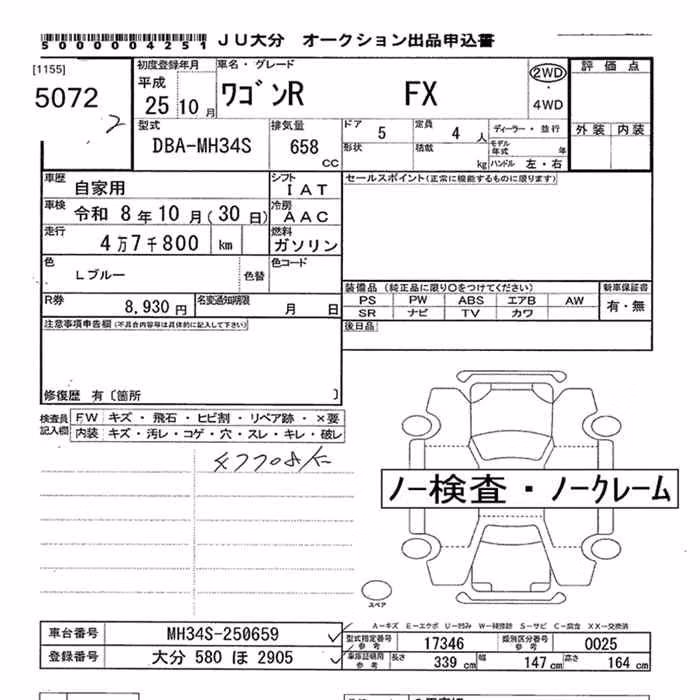 5000004251 JU大分 オークション出品申込書
[1155]
5072
2
初度登録年月 平成 25 10 月
車名・グレード ワゴンR FX
2WD ・ 4WD
評価点
外装 内装
型式 DBA-MH34S
排気量 658 cc
ドア 5 定員 4 人
形状 積載 kg
ディーラー・並行
モデル年式 年
ハンドル 左・右
車歴 自家用
シフト IAT
車検 令和 8 年 10 月(30 日)
冷房 AAC
走行 4万7千800 km
燃料 ガソリン
色 Lブルー 色替
色コード
R券 8,930 円
名変通知期限 月 日
セールスポイント(正常に機能するものに限ります)
装備品(純正品に限り○をつけてください)
PS PW ABS エアB AW
SR ナビ TV カワ
新車保証書 有・無
後日品
注意事項申告欄(不具合内容等は具体的に記入して下さい)
修復歴 有〔箇所 〕
検査員記入欄
FW キズ・飛石・ヒビ割・リペア跡・×要
内装 キズ・汚レ・コゲ・穴・スレ・キレ・破レ
ノー検査・ノークレーム
スペア
A−キズ E−エクボ U−凹み W−補修跡 S−サビ C−腐食 XX−交換済
車台番号 MH34S-250659
登録番号 大分 580 ほ 2905
型式指定番号 参考 17346
類別区分番号 参考 0025
車庫証明用 参考 長さ 339 cm 幅 147 cm 高さ 164 cm